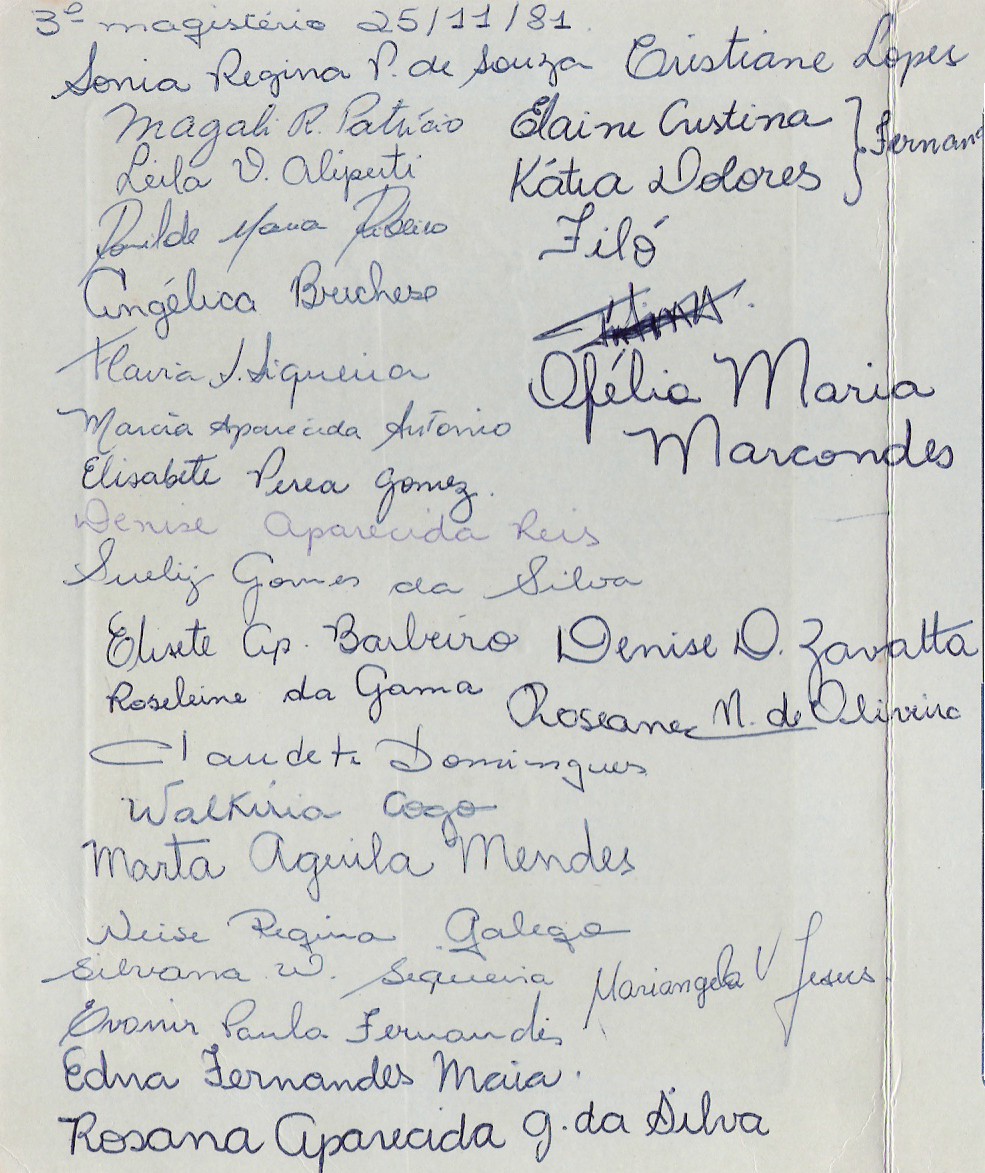 3º magistério 25/11/81
Sonia Regina P. de Souza Cristiane Lopes
Magali R. Patrício Elaine Cristina } Fernand
Leila V. Aliperti Kátia Dolores
Ronilde Maria Ribeiro Filó
Angélica Bruchese
Flavia J. Siqueira Ofélia Maria
Marcia Aparecida Antônio Marcondes
Elisabete Perea Gomez.
Denise Aparecida Reis
Suely Gomes da Silva
Elisete Ap. Barbeiro Denise D. Zavatta
Roseleine da Gama Roseane N. de Oliveira
Claudete Domingues
Walkíria Cogo
Marta Aguila Mendes
Neise Regina Galego
Silvana W. Siqueira Mariangela V Jesus.
Evanir Paula Fernandes
Edna Fernandes Maia.
Rosana Aparecida G. da Silva